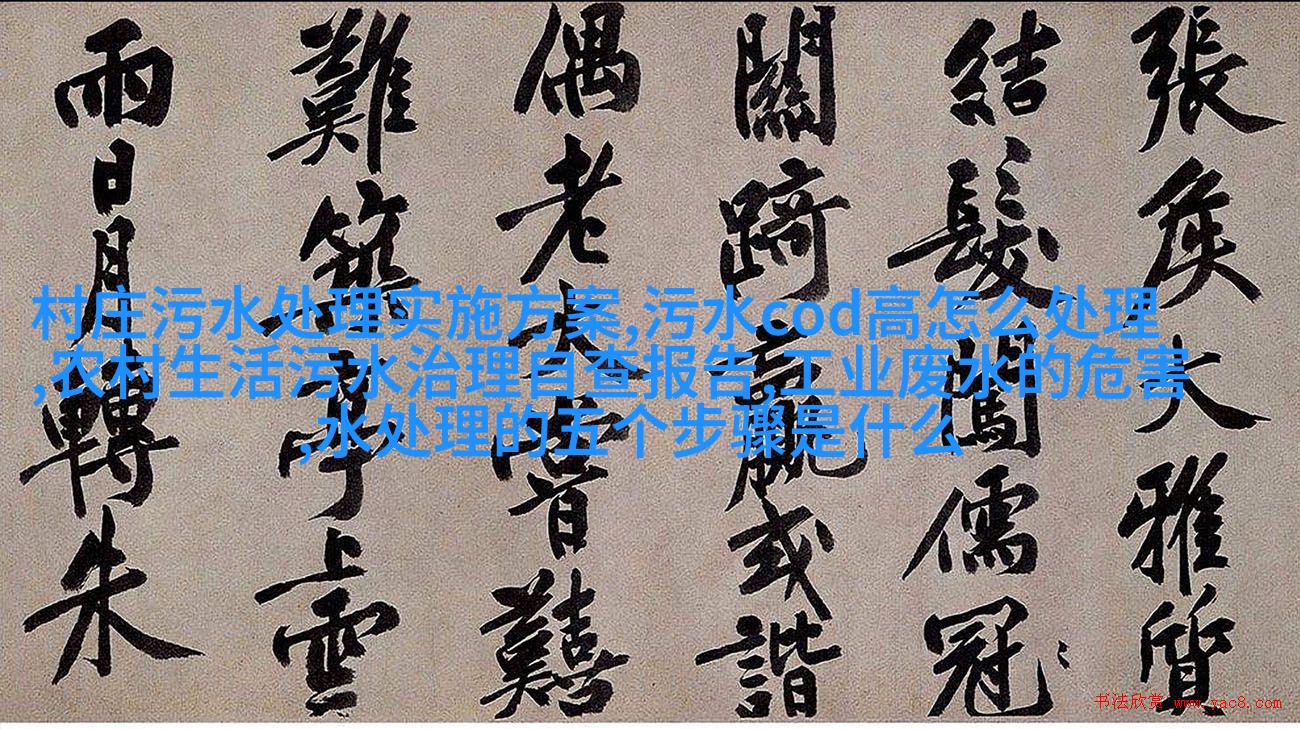 張矦大雅質
結髮闖儒冠
關踦羸或諧
偶老大嘗囏
難築亭上雲
雨日月轉朱
村庄污水处理实施方案,污水cod高怎么处理
,农村生活污水治理自查报告,工业废水的危害
,水处理的五个步骤是什么
书法欣赏 www.yac8.com